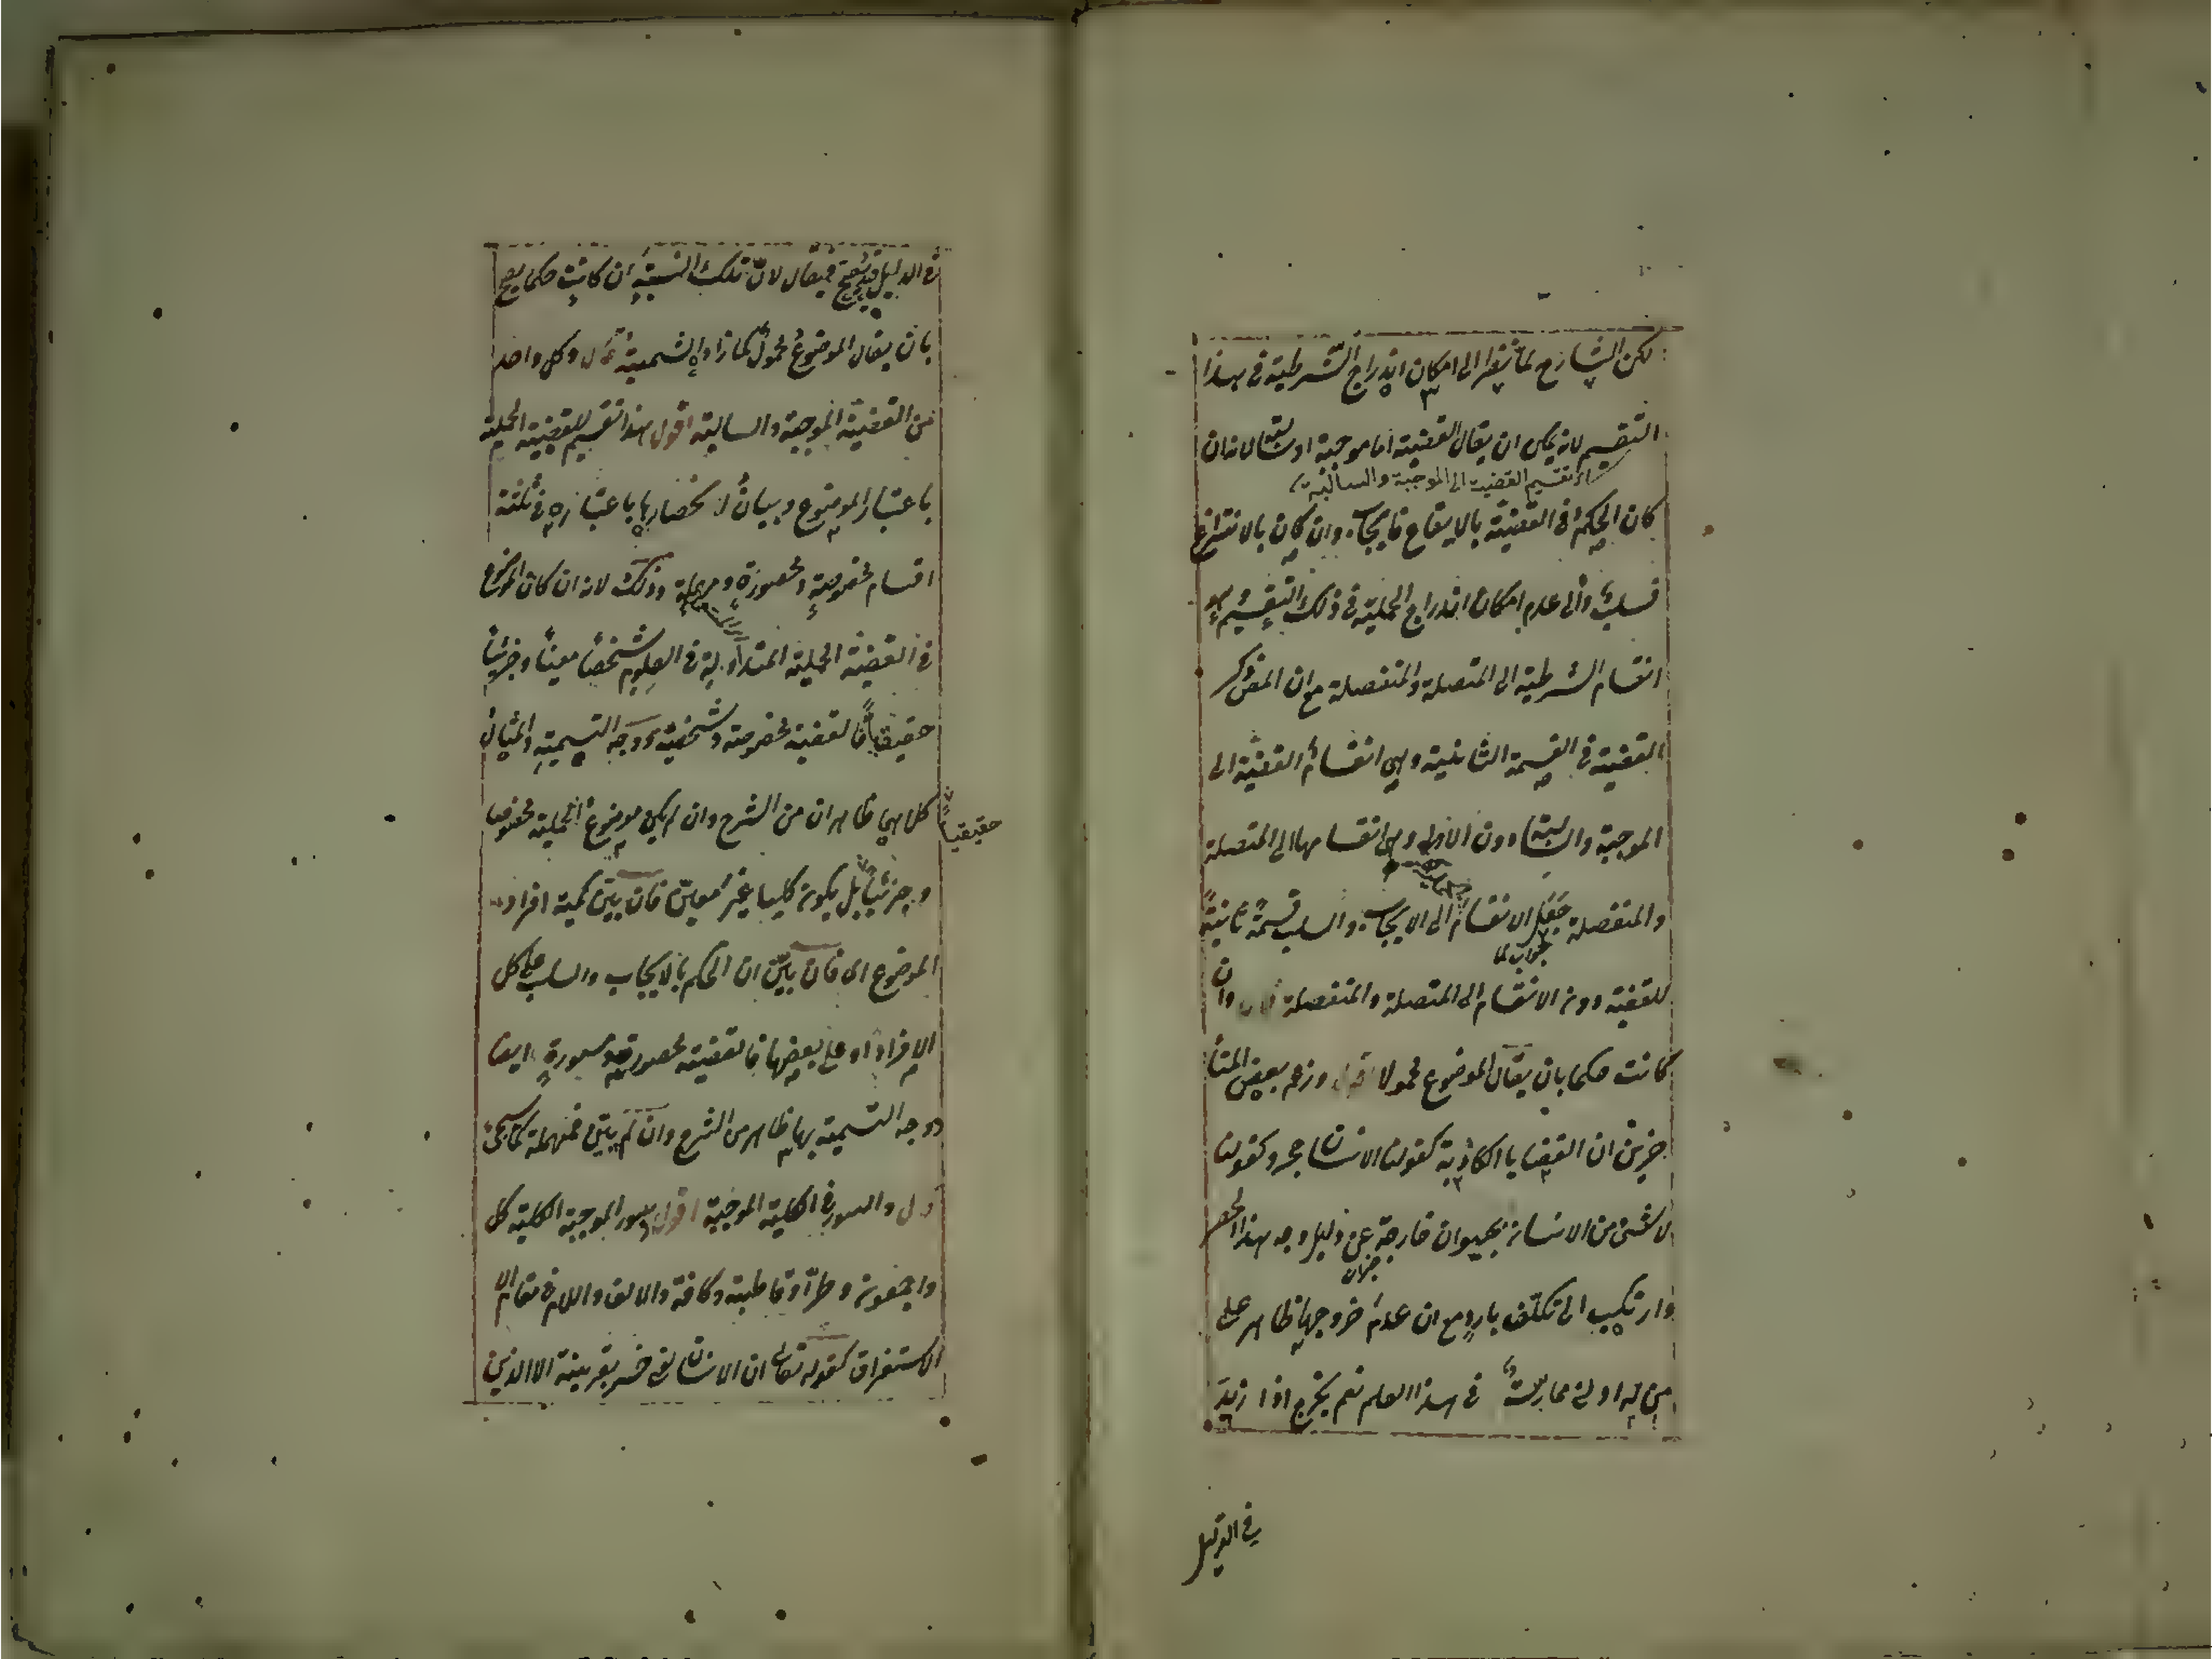 لكن الشارح لما نظر الى امكان اندراج الشرطية في هذا
التقسيم لانه يمكن ان يقال القضية اما موجبة او سالبة لانه ان
اى تقسيم القضية الى الموجبة والسالبة
كان الحكم في القضية بالايقاع فايجاب وان كان بالانتزاع
فسلب والى عدم امكان اندراج الحملية في ذلك التقسيم وهو
انقسام الشرطية الى المتصلة والمنفصلة مع ان المص ذكر
القضية في القسمة الثانية وهي انقسام القضية الى
الموجبة والسالبة دون الاولى وهي انقسامها الى المتصلة
والمنفصلة جعل الانقسام الى الايجاب والسلب قسمة ثانية
جواب لما
للقضية دون الانقسام الى المتصلة والمنفصلة قال وان
كانت حكما بان يقال الموضوع محمولا اقول وزعم بعض المتأ
خرين ان القضايا الكاذبة كقولنا الانسان حجر وكقولنا
لا شئ من الانسان بحيوان خارجة عن دليل وجه هذا الحصر
وارتكب الى تكلف بارد مع ان عدم خروجها ظاهر على
من له ادنى ممارسة في هذا العلم نعم يخرج اذا زيد
في الدليل
في الدليل فيقال لان تلك النسبة ان كانت حكما يصح
بان يقال الموضوع محمول كما زاد الشمسية قال وكل واحد
من القضية الموجبة والسالبة اقول هذا تقسيم للقضية الحملية
باعتبار الموضوع وبيان لانحصارها باعتباره في ثلثة
اقسام مخصوصة ومحصورة ومهملة وذلك لانه ان كان الموضوع
في القضية الحملية المتداولة في العلوم شخصا معينا وجزئيا
حقيقيا فالقضية مخصوصة وشخصية ووجه التسمية والمثال
حقيقيا
كل منها ظاهران من الشرح وان لم يكن موضوع الحملية مخصوصا
وجزئيا بل يكون كليا غير معين فان بين كمية افراد
الموضوع اى فان بين ان الحكم بالايجاب والسلب على كل
الافراد او على بعضها فالقضية محصورة ومسورة ايضا
ووجه التسمية بها ظاهر من الشرح وان لم يبين فمهملة كما سيجئ
قال والسور في الكلية الموجبة اقول وسور الموجبة الكلية كل
واجمعون وطرا وقاطبة وكافة والالف واللام في مقام
الاستغراق كقوله تعالى ان الانسان لفى خسر بقرينة الا الذين